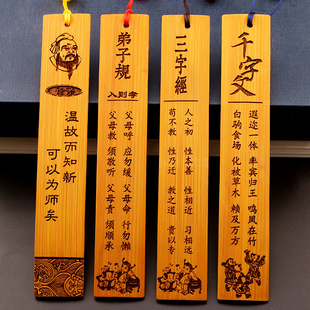 温故而知新
可以为师矣
弟子規
入则孝
父母呼 应勿缓 父母命 行勿懒
父母教 须敬听 父母责 须顺承
三字經
人之初 性本善 性相近 习相远
苟不教 性乃迁 教之道 贵以专
千字文
遐迩一体 率宾归王 鸣凤在竹
白驹食场 化被草木 赖及万方